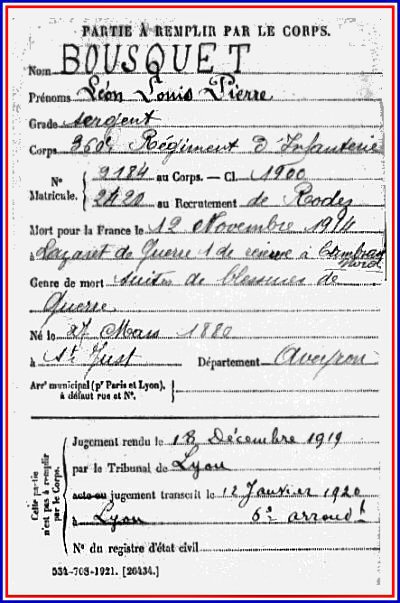 PARTIE À REMPLIR PAR LE CORPS.
Nom BOUSQUET
Prénoms Léon Louis Pierre
Grade sergent
Corps 360e Régiment d'Infanterie
N° Matricule. 2184 au Corps. — Cl. 1900
2420 au Recrutement de Rodez
Mort pour la France le 12 Novembre 1914
à Lazaret de Guerre 1 de réserve à Cambrai Nord
Genre de mort suites de blessures de
guerre
Né le 27 Mars 1880
à St Just Département Aveyron
Arrt municipal (pr Paris et Lyon),
à défaut rue et N°.
Cette partie n'est pas à remplir par le Corps.
Jugement rendu le 18 Décembre 1919
par le Tribunal de Lyon
acte ou jugement transcrit le 12 Janvier 1920
à Lyon 6e arrondt
N° du registre d'état civil
534-708-1921. [26434.]